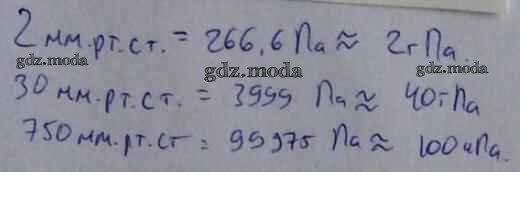 2 мм.рт.ст. = 266,6 Па ≈ 2гПа.
gdz.moda gdz.moda gdz.moda
30 мм.рт.ст. = 3999 Па ≈ 40гПа
750 мм.рт.ст = 99975 Па ≈ 100кПа.